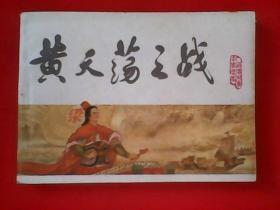 黄天荡之战